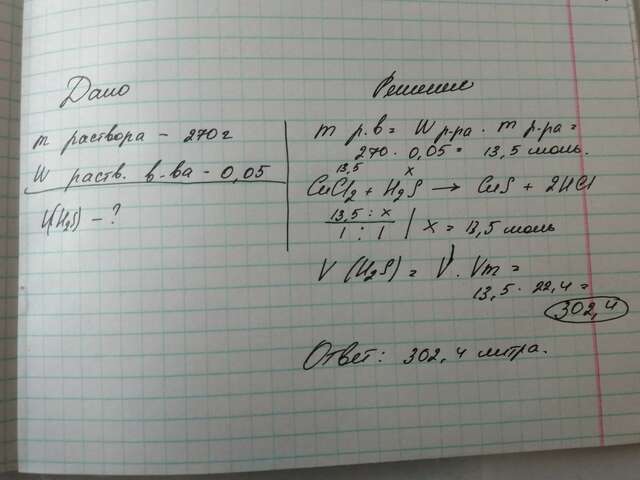 Дано
m раствора - 270г
W раств. в-ва - 0,05
V(H₂S) - ?
Решение
m р.в = W р-ра · m р-ра =
270 · 0,05 = 13,5 моль.
13,5 x
CuCl₂ + H₂S → CuS + 2HCl
13,5 : x
1 : 1 | x = 13,5 моль
V (H₂S) = V · Vm =
13,5 · 22,4 =
302,4
Ответ: 302,4 литра.